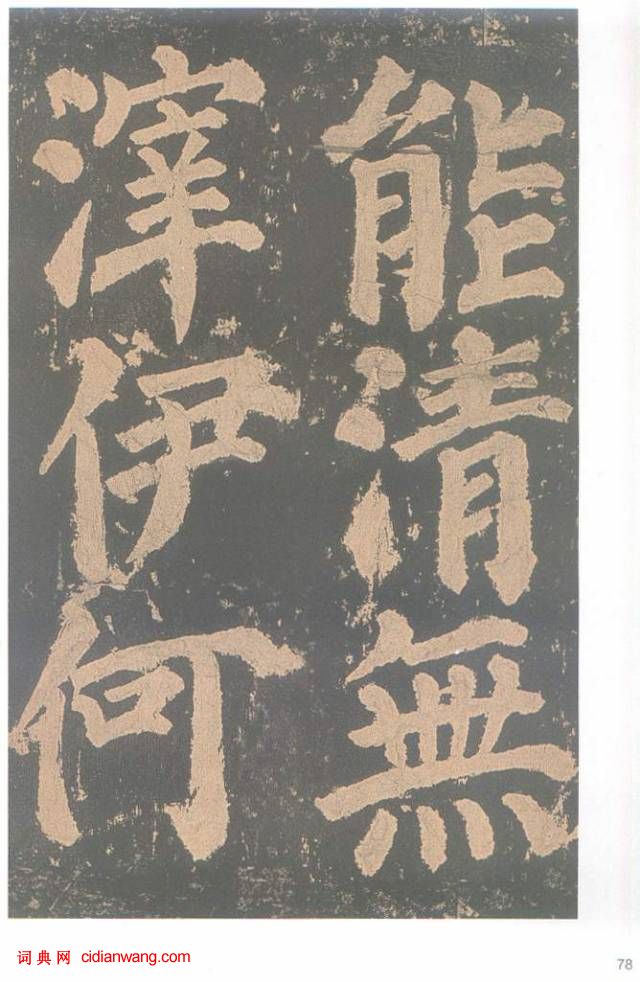 能清無
滓伊何
词典网 cidianwang.com
78